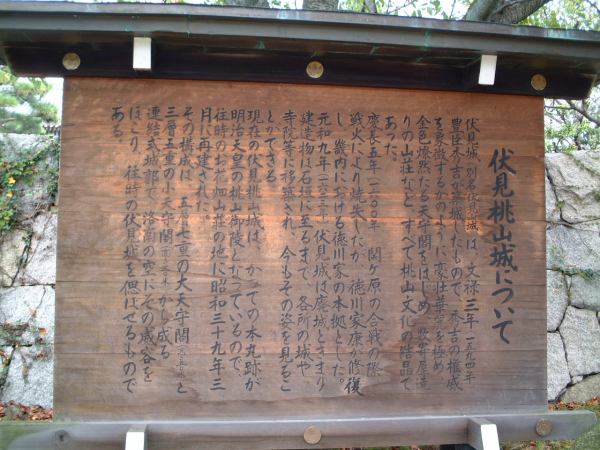 伏見桃山城について
伏見城（別名伏見山城）は、文禄三年（一五九四年）
豊臣秀吉が築城したもので、秀吉の権威
を象徴するかのように豪壮華麗を極め
金色燦然たる天守閣をはじめ、数寄屋造
りの山荘など、すべて桃山文化の結晶で
あった。
慶長五年（一六〇〇年）関ケ原の合戦の際
戦火により焼失したが、徳川家康が修復
し、畿内における徳川家の本拠とした。
元和九年（一六二三年）伏見城は廃城ときまり
建造物は石垣に至るまで、各所の城や
寺院等に移築され、今もその姿を見るこ
とができる。
現在の伏見桃山城は、かつての本丸跡が
明治天皇の桃山御陵となっているので、
往時のお花畑山荘の地に昭和三十九年三
月に再建された。
その構成は、五層七重の大天守閣と
三層五重の小天守閣から成る
連結式城郭で、洛南の空にその威容を
ほこり、往時の伏見城を偲ばせるもので
ある。